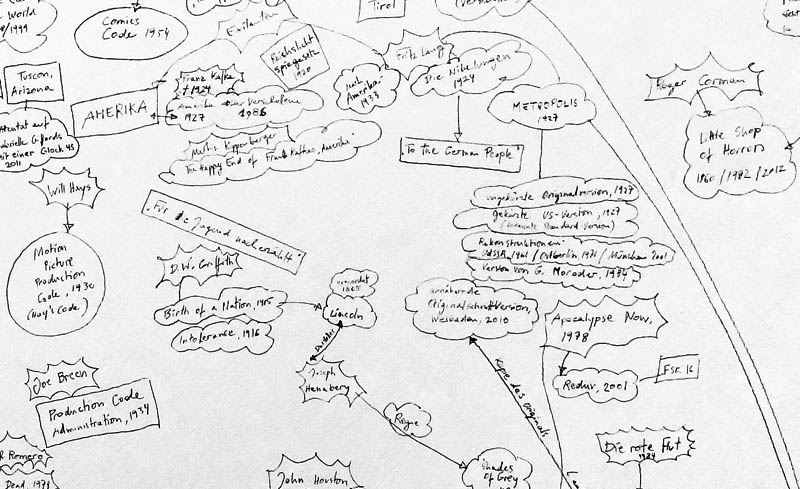 World
1999
Comics
Code 1954
Exilanten
Tirol
Reichslicht
spiegesetz
1920
Fritz Lang
Die Nibelungen
1924
nach
Amerika
1933
Tuscon,
Arizona
AMERIKA
Franz Kafka
† 1924
Amerika oder Verschollene
1927 1986
METROPOLIS
1927
Roger Corman
Little Shop
of Horrors
1960 / 1982 / 2012
Attentat auf
Gabrielle Giffords
mit einer Glock 45
2011
Martin Kippenberger
The Happy End of Franz Kafkas „Amerika“
„To the German People“
Will Hays
Motion
Picture
Production
Code, 1930
(Hay's Code)
„Für die Jugend nacherzählt“
ungekürzte Originalversion, 1927
gekürzte US-Version, 1927
Rekonstruktionen:
UdSSR 1961 / Ostberlin 1972 / München 2001
Version von G. Moroder, 1984
D.W. Griffith
Birth of a Nation, 1915
Intolerance, 1916
ermordet
1865
Lincoln
Darsteller
Joseph
Henabery
annähernde
Originalschnittversion,
Wiesbaden, 2010
Apocalypse Now,
1978
Redux, 2001
FSK 16
Kopie des Originals
Joe Breen
Production Code
Administration, 1934
Regie
Shades
of Grey
Die rote Flut
1984
Romero
Dead, 1978
John Houston